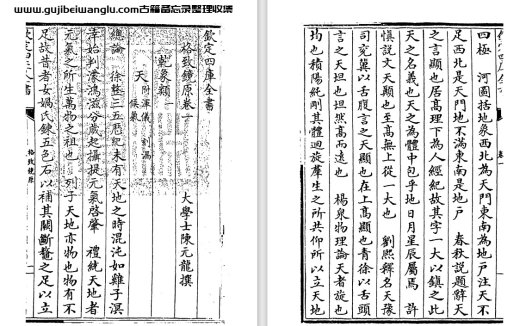 www.gujibeiwanglu.com古籍备忘录整理收集
欽定四庫全書
格致鏡原卷一
大學士陳元龍撰
乾象類一
天 附渾儀 刻漏 候氣
總論 徐整三五厯紀未有天地之時混沌如雞子溟
涬始判濛鴻滋分歲起攝提元氣啓肇 禮統天地者
元氣之所生萬物之祖也 列子天地亦物也物有不
足故昔者女媧氏錬五色石以補其闕斷鼇之足以立
格致鏡原
四極 河圖括地象西北為天門東南為地戸注天不
足西北是天門地不滿東南是地戸 春秋說題辭天
之言顯也居高理下為人經紀故其字一大以鎮之此
天之名義也天之為體中包乎地日月星辰屬焉 許
慎說文天顚也至高無上從一大也 劉熙釋名天豫
司兖冀以舌腹言之天顯也在上高顯也青徐以舌頭
言之天坦也坦然高而逺也 楊泉物理論天者旋也
均也積陽純剛其體迴旋羣生之所共仰所以立天地